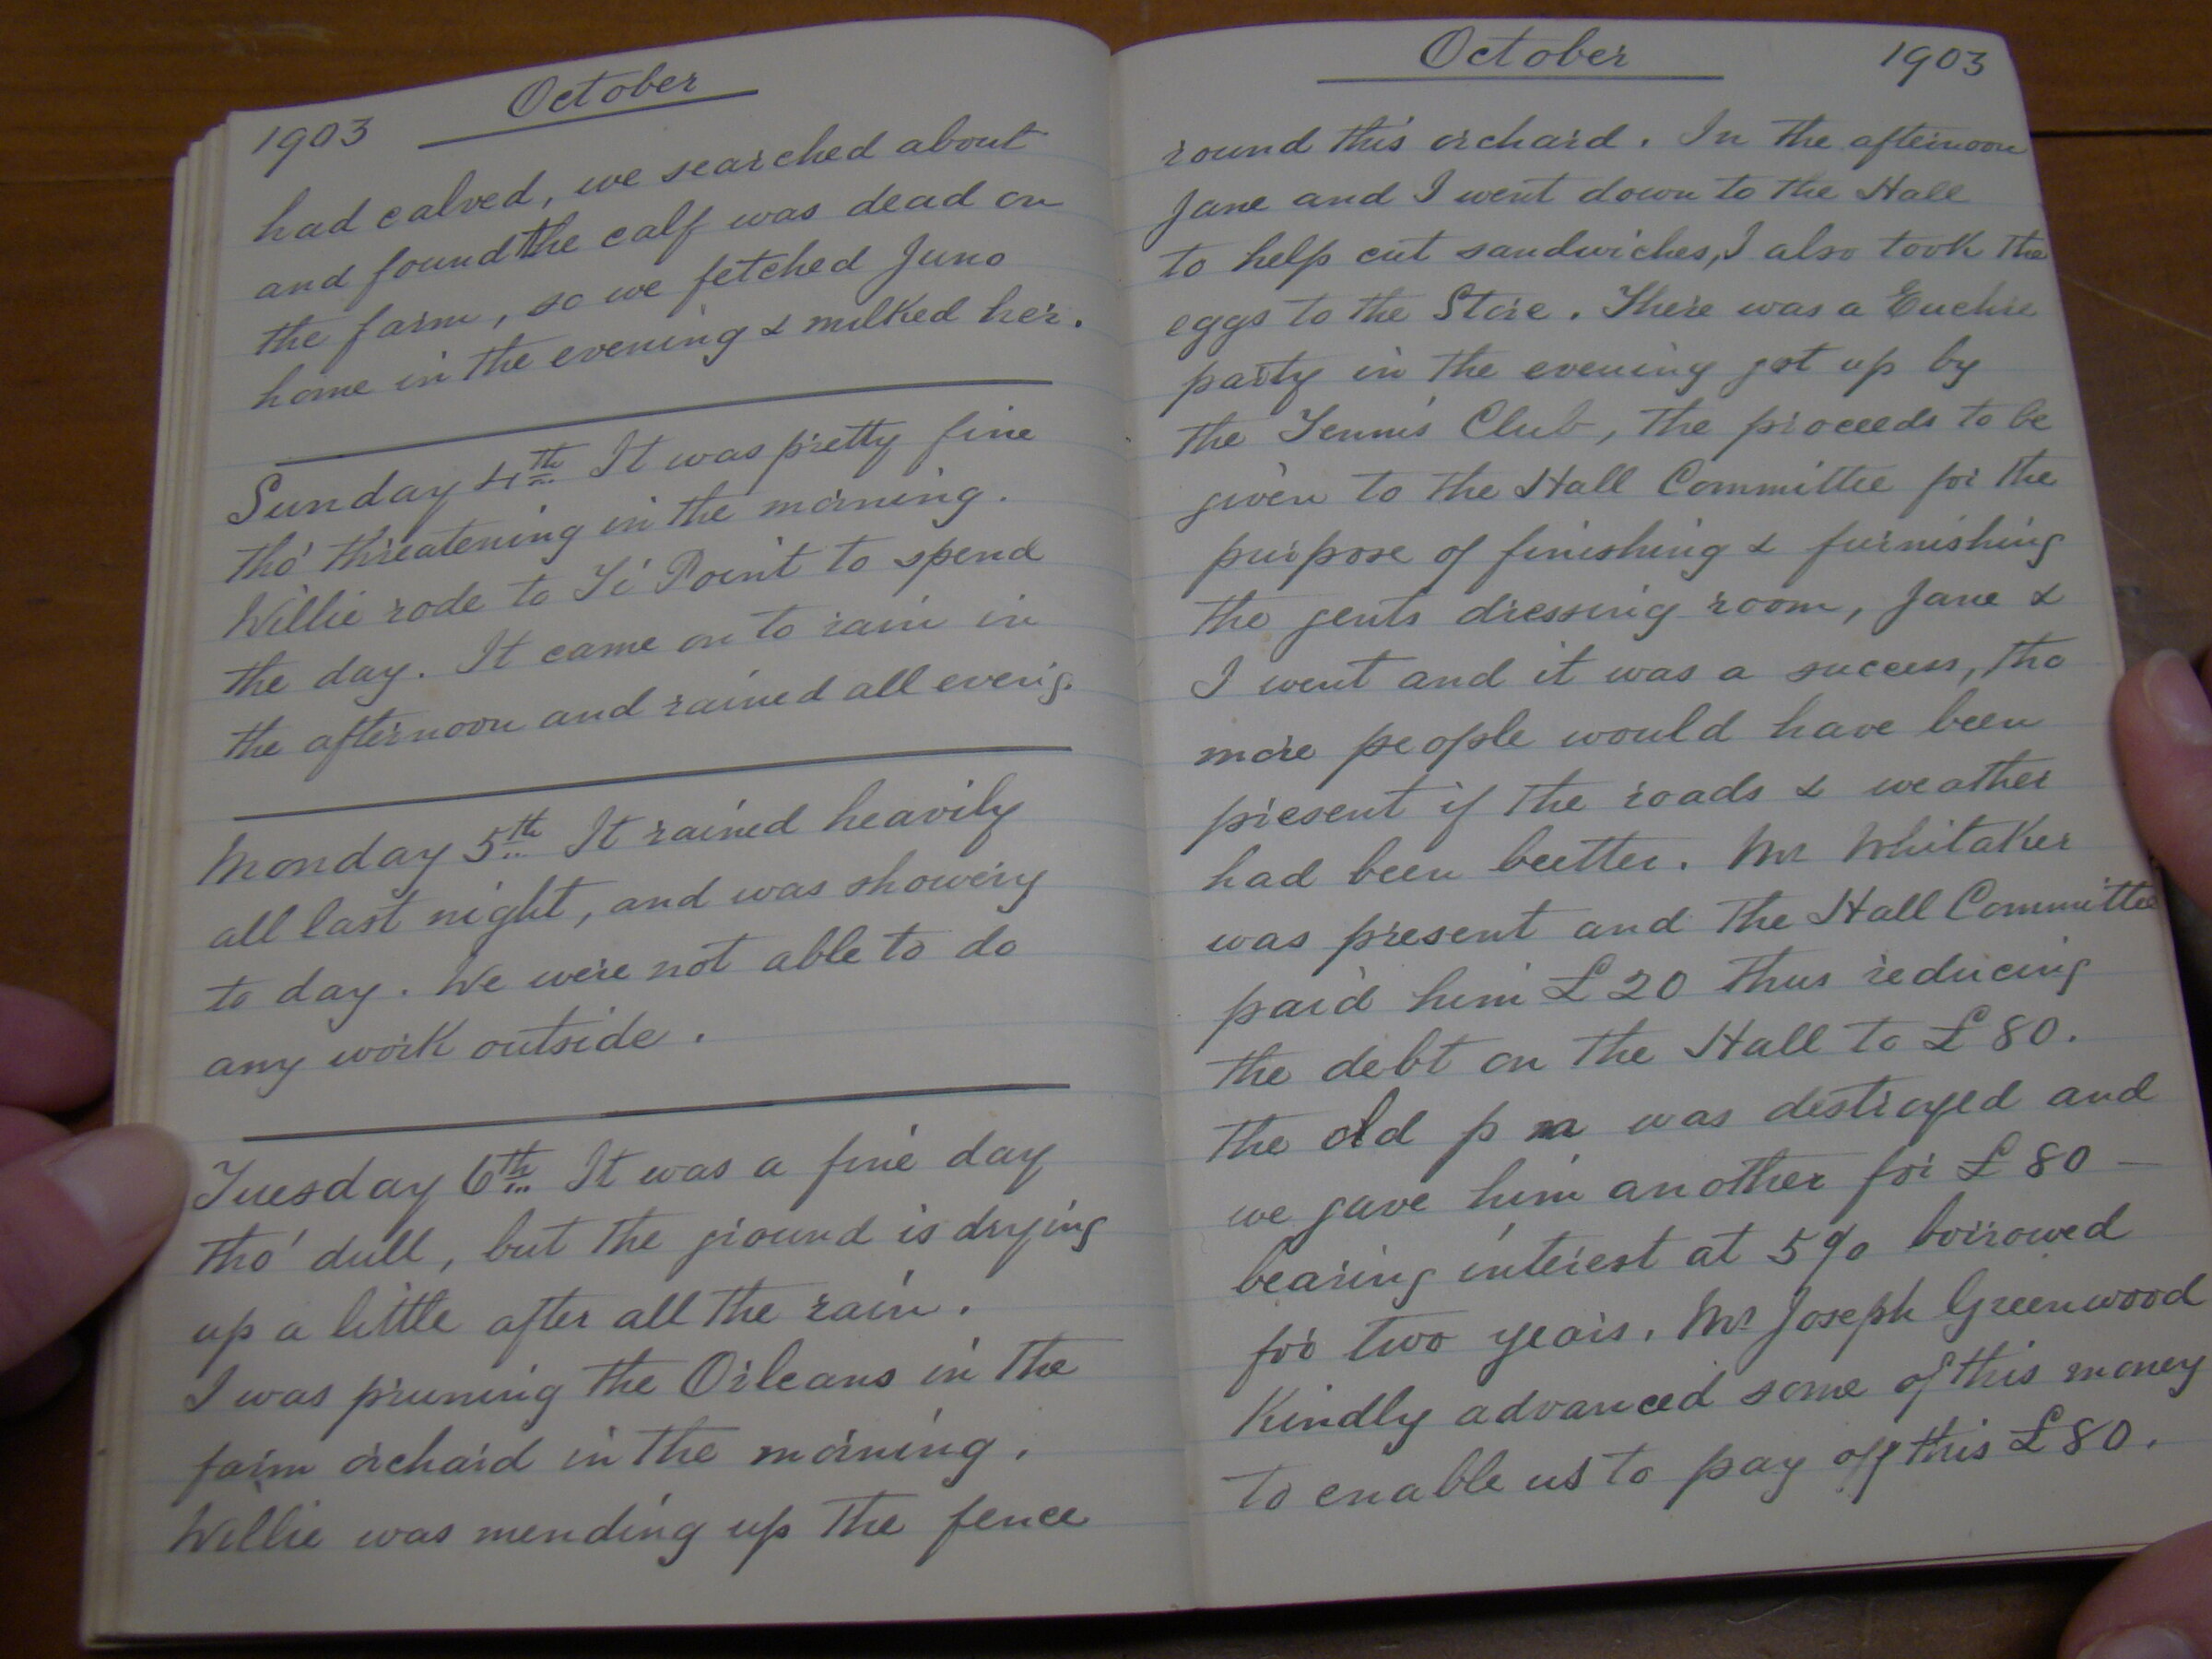 1903 October
had calved, we searched about
and found the calf was dead on
the farm, so we fetched Juno
home in the evening & milked her.
Sunday 4th It was pretty fine
tho' threatening in the morning.
Willie rode to Ti Point to spend
the day. It came on to rain in
the afternoon and rained all eveng.
Monday 5th It rained heavily
all last night, and was showery
to day. We were not able to do
any work outside.
Tuesday 6th It was a fine day
tho' dull, but the ground is drying
up a little after all the rain.
I was pruning the Orleans in the
farm orchard in the morning.
Willie was mending up the fence
October 1903
round this orchard. In the afternoon
Jane and I went down to the Hall
to help cut sandwiches, I also took the
eggs to the Store. There was a Euchre
party in the evening got up by
the Tennis Club, the proceeds to be
given to the Hall Committee for the
purpose of finishing & furnishing
the gents dressing room, Jane &
I went and it was a success, tho
more people would have been
present if the roads & weather
had been beetter. Mr Whitaker
was present and the Hall Committee
paid him £20 thus reducing
the debt on the Hall to £80.
the old p n was destroyed and
we gave him another for £80 —
bearing interest at 5% borrowed
for two years. Mr Joseph Greenwood
Kindly advanced some of this money
to enable us to pay off this £80.